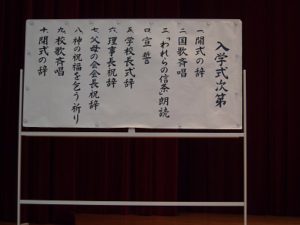 入学式次第
一 開式の辞
二 国歌斉唱
三 「われらの信条」朗読
四 宣誓
五 学校長式辞
六 理事長祝辞
七 父母の会会長祝辞
八 神の祝福を乞う祈り
九 校歌斉唱
十 閉式の辞